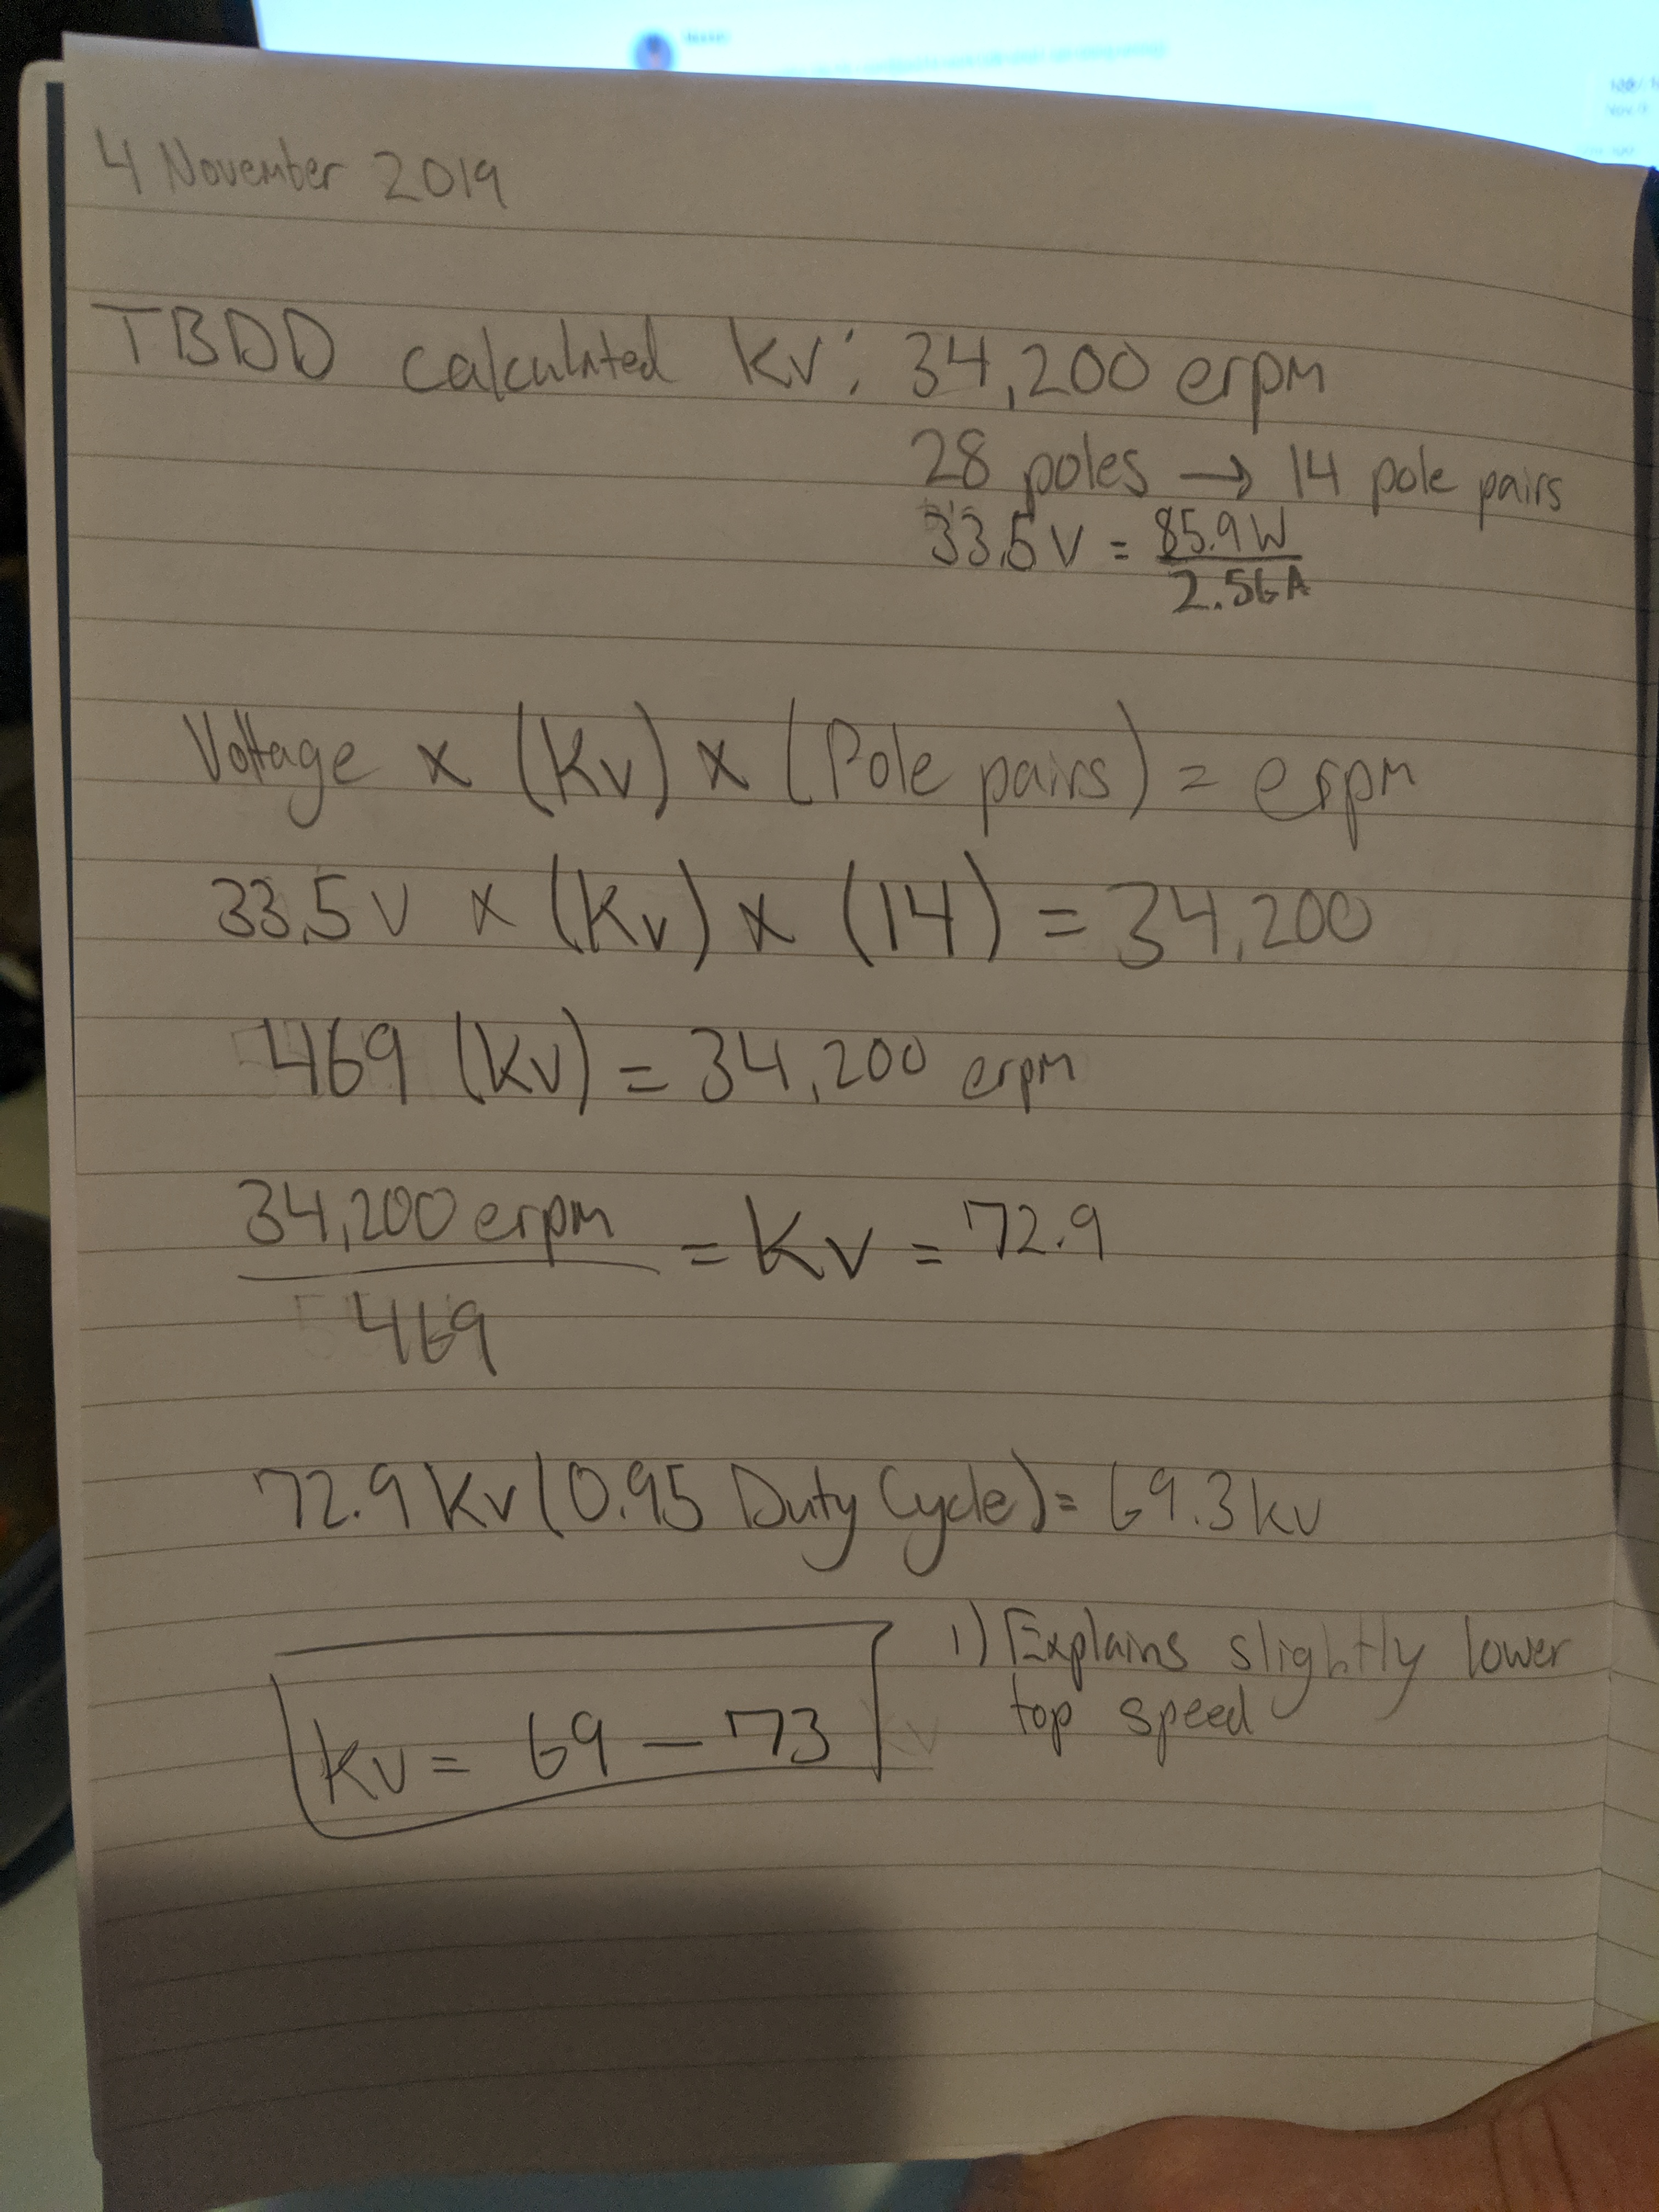 4 November 2019
TBDD calculated kv: 34,200 erpm
28 poles → 14 pole pairs
33.5 V = 85.9W / 2.56A
Voltage x (Kv) x (Pole pairs) = erpm
33.5 V x (Kv) x (14) = 34,200
469 (Kv) = 34,200 erpm
34,200 erpm / 469 = Kv = 72.9
72.9 Kv (0.95 Duty Cycle) = 69.3 kv
Kv = 69 – 73
1) Explains slightly lower
top speed